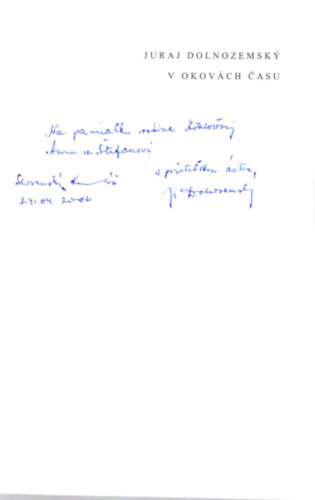 JURAJ DOLNOZEMSKÝ
V OKOVÁCH ČASU
Na pamiatku rodine
Anne a Štefanovi
s priateľskou úctou,
Slovenský
24.04.2006
J. Dolnozemský